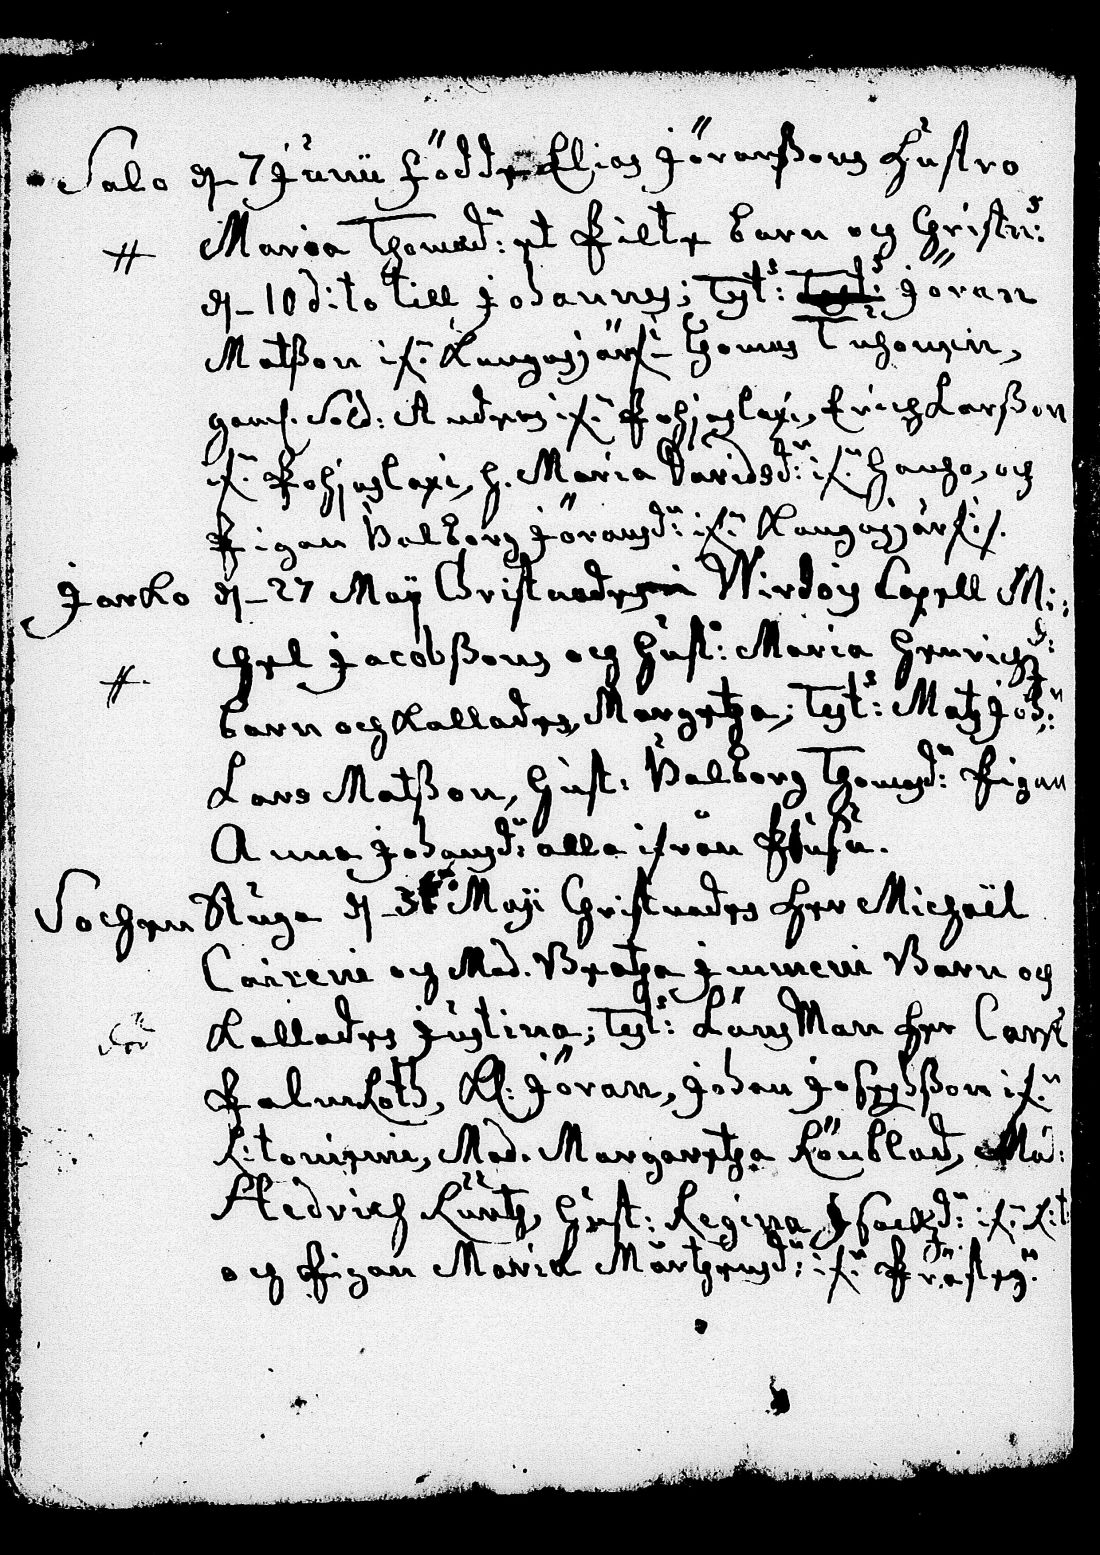 Salo d 7 Junii födde Elias Jöranßons Hustro
# Maria Thomæd: et Pilte barn och Christn:
d 10 dito till Johannes; Test: Jöran
Matßon if: Kangasjärf Thomas Tuhonen,
gaml. Sold: Anders if: Pohjaslaxi, Erich Larßon
if: Pohjaslaxi, h. Maria Davidsd: if: Hauho, och
Pigan Valborg Jöransd: if: Kangasjärfi.
Jarko d 27 Maij Christnades i Wirdois Capell Mi:
chel Jacobßons och Hust: Maria Henrichsd:
# barn och Kallades, Margetha; Test: Mats Joh:
Lars Matßon, Hust: Valborg Thomsd: Pigan
Anna Johansd: alla ifrån
Sochen Stuga d 31 Maji Christnades Herr Michaël
Caireni och Mad. Beata Immeni Barn och
död Kallades Justina; Test: Länsman Herr Carl
Palmroth, Kl: Jöran, Johan Josephßon if:
Kitonieni, Mad. Margaretha Löublad, Mad:
Hedvich Kürth, Hust: Regina Isacksd: if: Kit:
och Pigan Maria Mårthensd: if: Präst